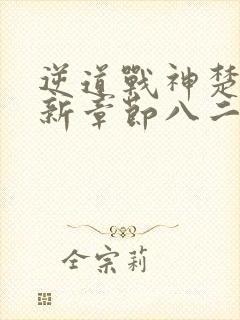 逆道戰神楚
新章節八二
仝宗莉